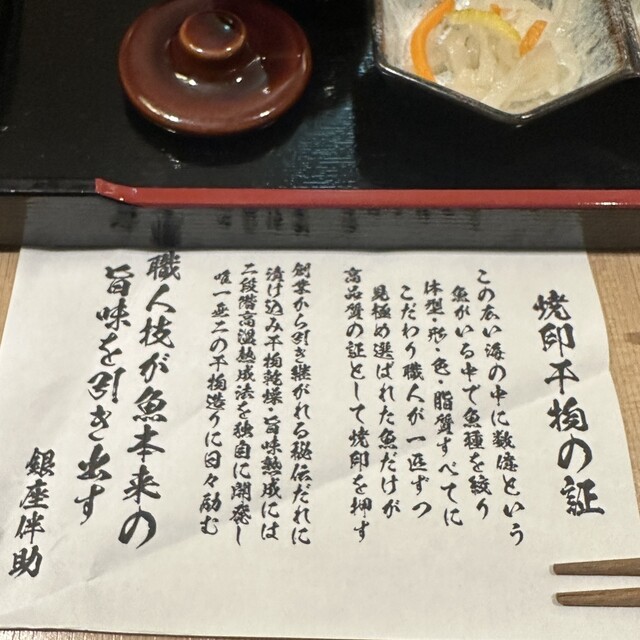 焼印干物の証
この広い海の中に数億という
魚がいる中で魚種を絞り
体型・形・色・脂質すべてに
こだわり職人が一匹ずつ
見極め選ばれた魚だけが
高品質の証として焼印を押す
創業から引き継がれる秘伝だれに
漬け込み干物乾燥・旨味熟成には
二段階高温熟成法を独自に開発し
唯一無二の干物造りに日々励む
職人技が魚本来の
旨味を引き出す
銀座伴助